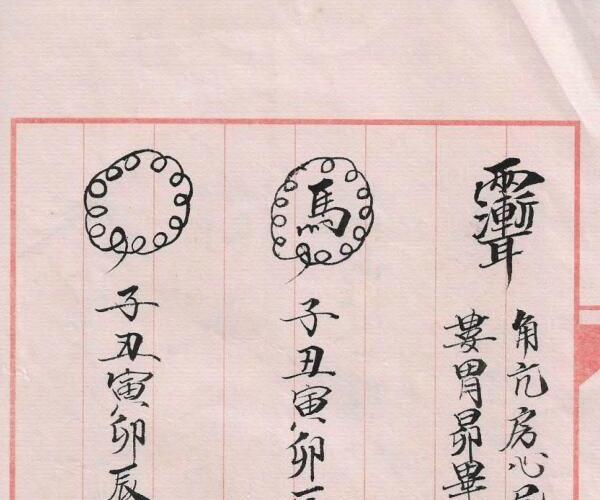 角亢房心
婁胃昴畢
馬
子丑寅卯
子丑寅卯辰